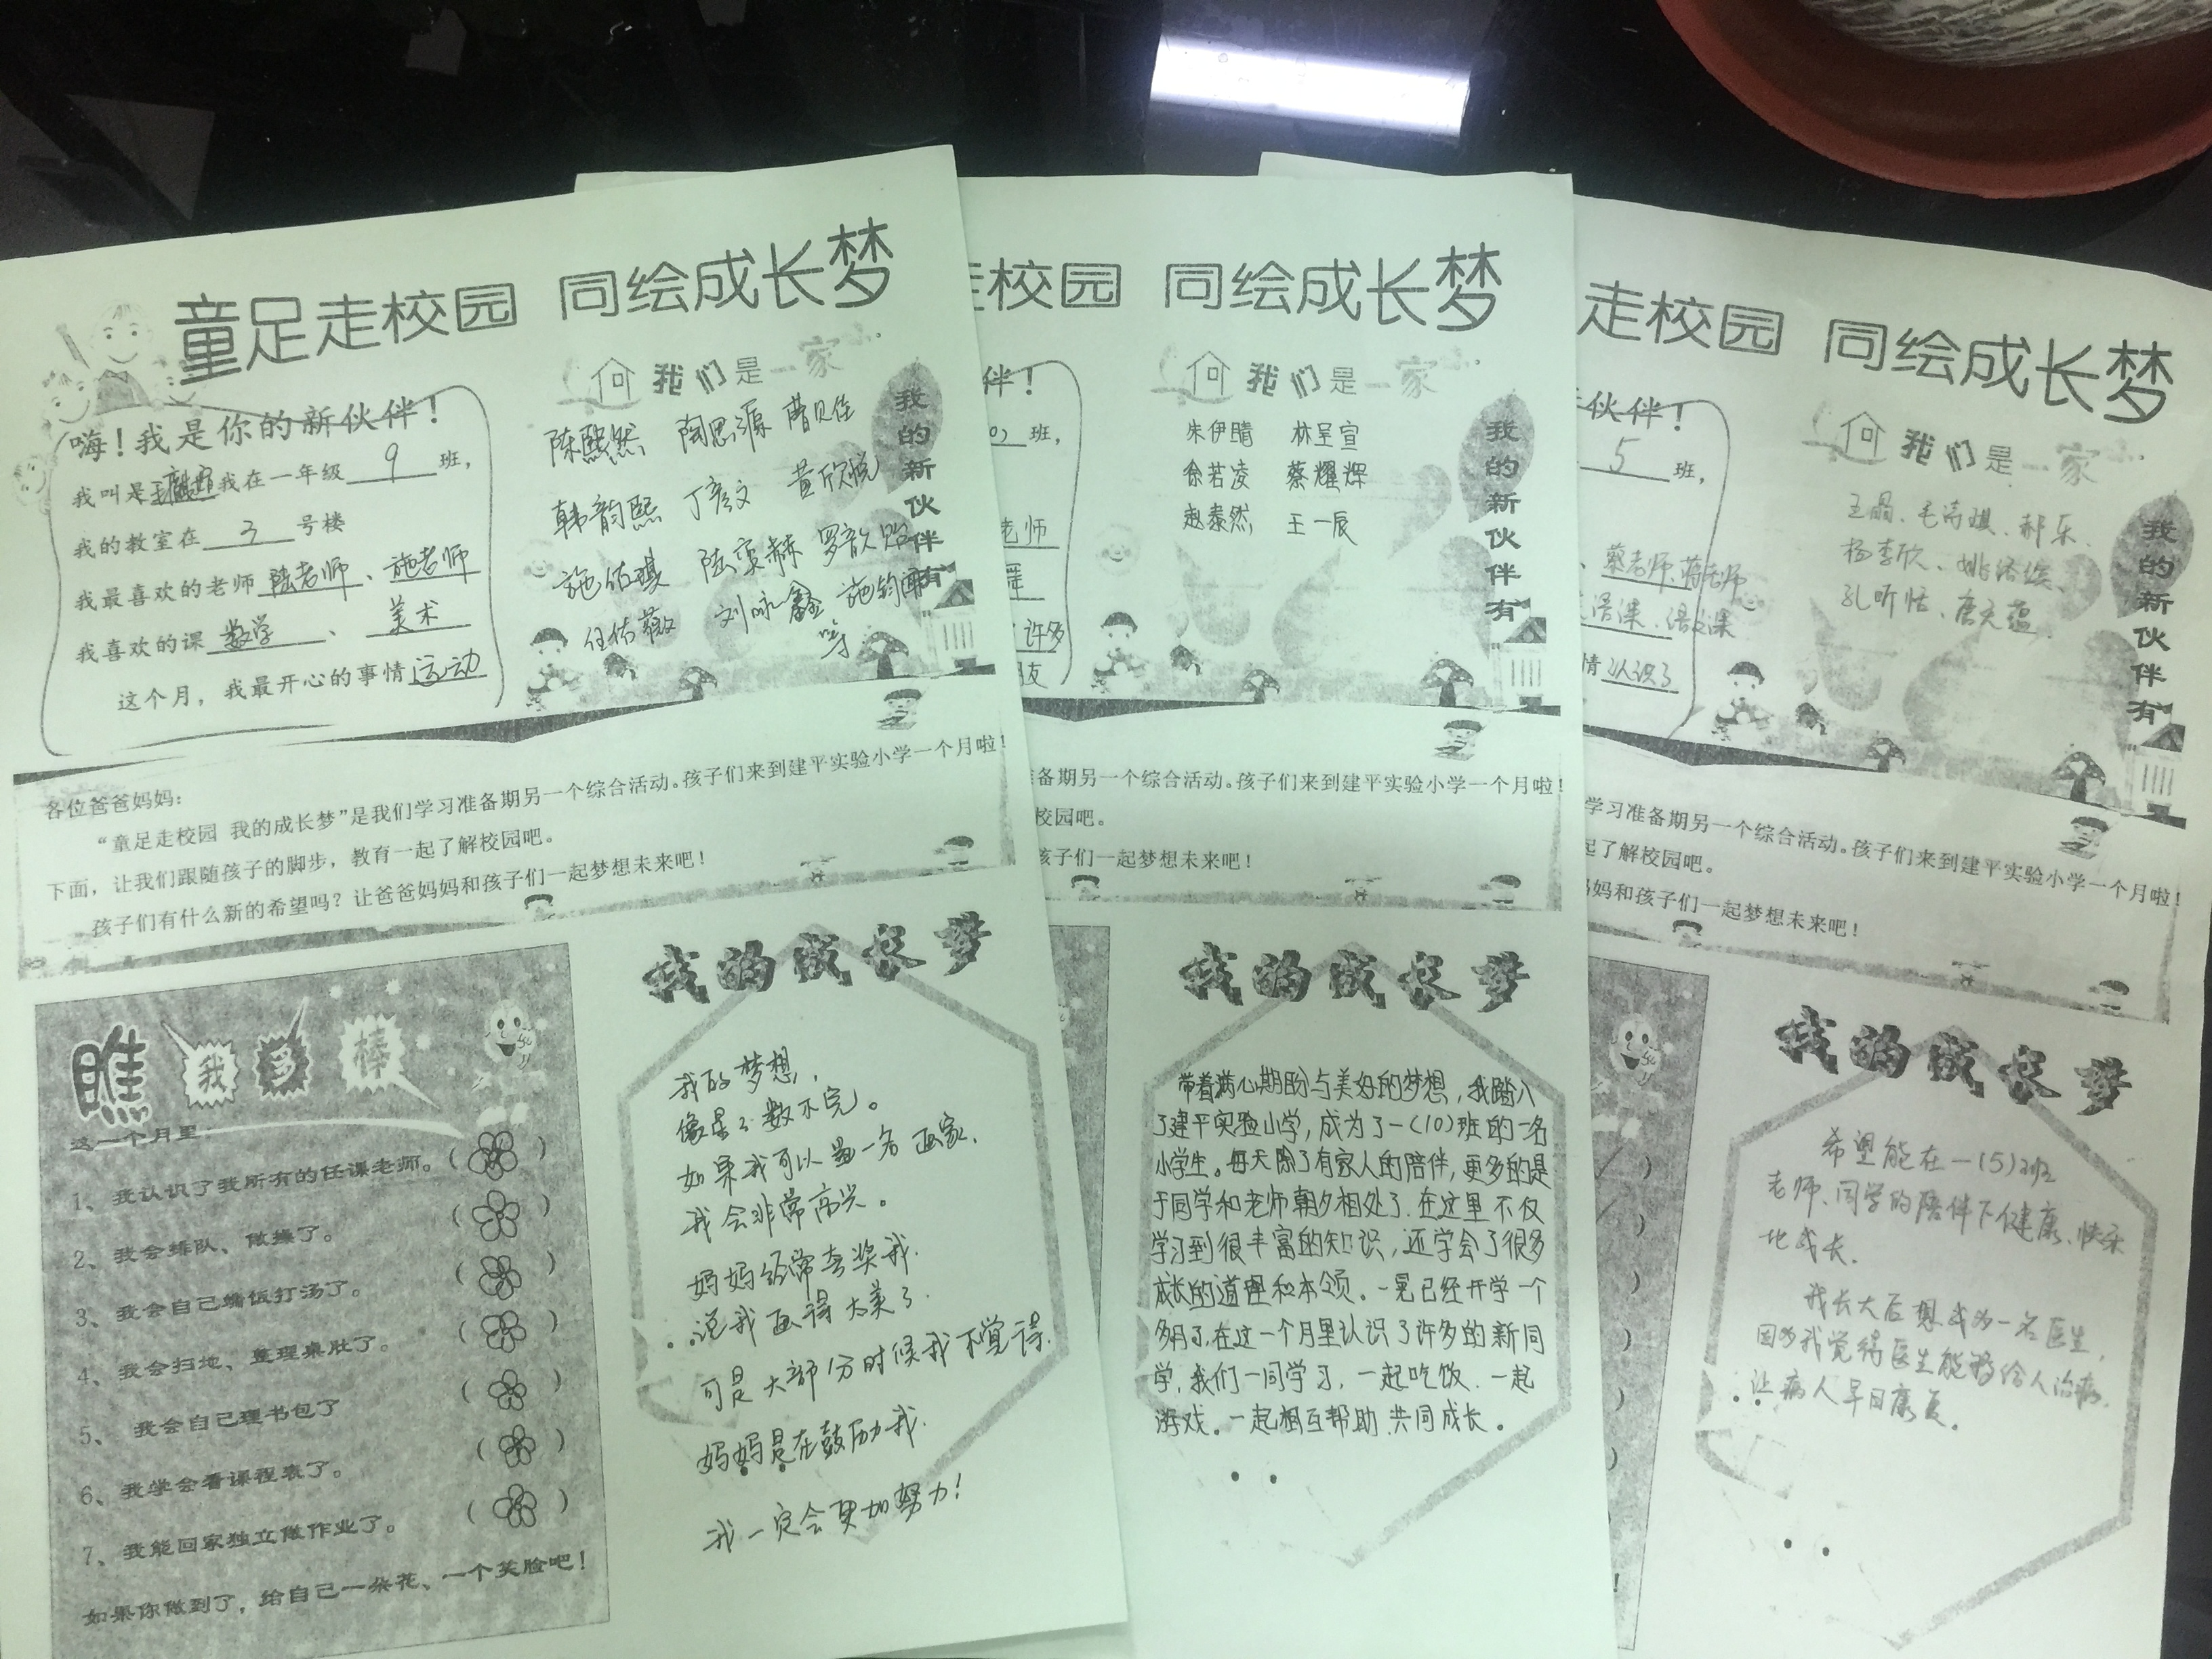 童足走校园 同绘成长梦
嗨！我是你的新伙伴！
我叫是 我在一年级 9 班，
我的教室在 3 号楼
我最喜欢的老师 陆老师、施老师
我喜欢的课 数学 、 美术
这个月，我最开心的事情 运动
我们是一家
陈熙然 陶思源 曹贝佳
韩韵熙 丁彦文 黄欣悦
施佑琪 陆奕赫 罗歆贻
任佑薇 刘咏鑫 施钧
等
我的新伙伴有
各位爸爸妈妈：
“童足走校园 我的成长梦”是我们学习准备期另一个综合活动。孩子们来到建平实验小学一个月啦！
下面，让我们跟随孩子的脚步，教育一起了解校园吧。
孩子们有什么新的希望吗？让爸爸妈妈和孩子们一起梦想未来吧！
瞧 我多棒
这一个月里：
1、我认识了我所有的任课老师。（ ）
2、我会排队、做操了。（ ）
3、我会自己端饭打汤了。（ ）
4、我会扫地、整理桌肚了。（ ）
5、我会自己理书包了（ ）
6、我学会看课程表了。（ ）
7、我能回家独立做作业了。（ ）
如果你做到了，给自己一朵花、一个笑脸吧！
我的成长梦
我的梦想，
像星星数不完。
如果我可以当一名画家，
我会非常高兴。
妈妈经常夸奖我，
说我画得太美了.
可是大部分时候我不觉得.
妈妈是在鼓励我.
我一定会更加努力！
走校园 同绘成长梦
伴！
班，
老师
许多
友
我们是一家
朱伊晴 林呈宣
徐若凌 蔡耀辉
赵泰然 王一辰
我的新伙伴有
准备期另一个综合活动。孩子们来到建平实验小学一个月啦！
校园吧。
孩子们一起梦想未来吧！
我的成长梦
带着满心期盼与美好的梦想，我踏入
了建平实验小学，成为了一（10）班的一名
小学生。每天除了有家人的陪伴，更多的是
于同学和老师朝夕相处了.在这里不仅
学习到很丰富的知识，还学会了很多
成长的道理和本领。一晃已经开学一个
多月了.在这一个月里认识了许多的新同
学，我们一同学习，一起吃饭.一起
游戏.一起相互帮助.共同成长。
走校园 同绘成长梦
伙伴！
5 班，
、蔡老师、蒋老师
语课、语文课
情 认识了
我们是一家
王晶、毛诗琪、郝乐、
杨李欣、姚
孔听恬、唐天蕴.
我的新伙伴有
学习准备期另一个综合活动。孩子们来到建平实验小学一个月啦！
起了解校园吧。
妈妈和孩子们一起梦想未来吧！
我的成长梦
希望能在一（5）班
老师、同学的陪伴下健康、快乐
地成长.
我长大后想成为一名医生，
因为我觉得医生能够给人治病，
让病人早日康复。